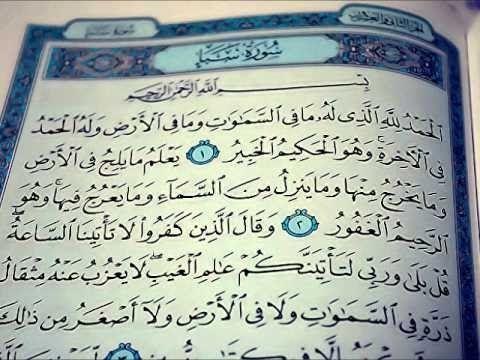 الجزء الثاني والعشرون
سورة سبأ
سُورَةُ سَبَإٍ
بِسْمِ اللَّهِ الرَّحْمَٰنِ الرَّحِيمِ
الْحَمْدُ لِلَّهِ الَّذِي لَهُ مَا فِي السَّمَاوَاتِ وَمَا فِي الْأَرْضِ وَلَهُ الْحَمْدُ
فِي الْآخِرَةِ وَهُوَ الْحَكِيمُ الْخَبِيرُ ١ يَعْلَمُ مَا يَلِجُ فِي الْأَرْضِ
وَمَا يَخْرُجُ مِنْهَا وَمَا يَنزِلُ مِنَ السَّمَاءِ وَمَا يَعْرُجُ فِيهَا وَهُوَ
الرَّحِيمُ الْغَفُورُ ٢ وَقَالَ الَّذِينَ كَفَرُوا لَا تَأْتِينَا السَّاعَةُ
قُلْ بَلَىٰ وَرَبِّي لَتَأْتِيَنَّكُمْ عَالِمِ الْغَيْبِ لَا يَعْزُبُ عَنْهُ مِثْقَالُ
ذَرَّةٍ فِي السَّمَاوَاتِ وَلَا فِي الْأَرْضِ وَلَا أَصْغَرُ مِن ذَٰلِكَ